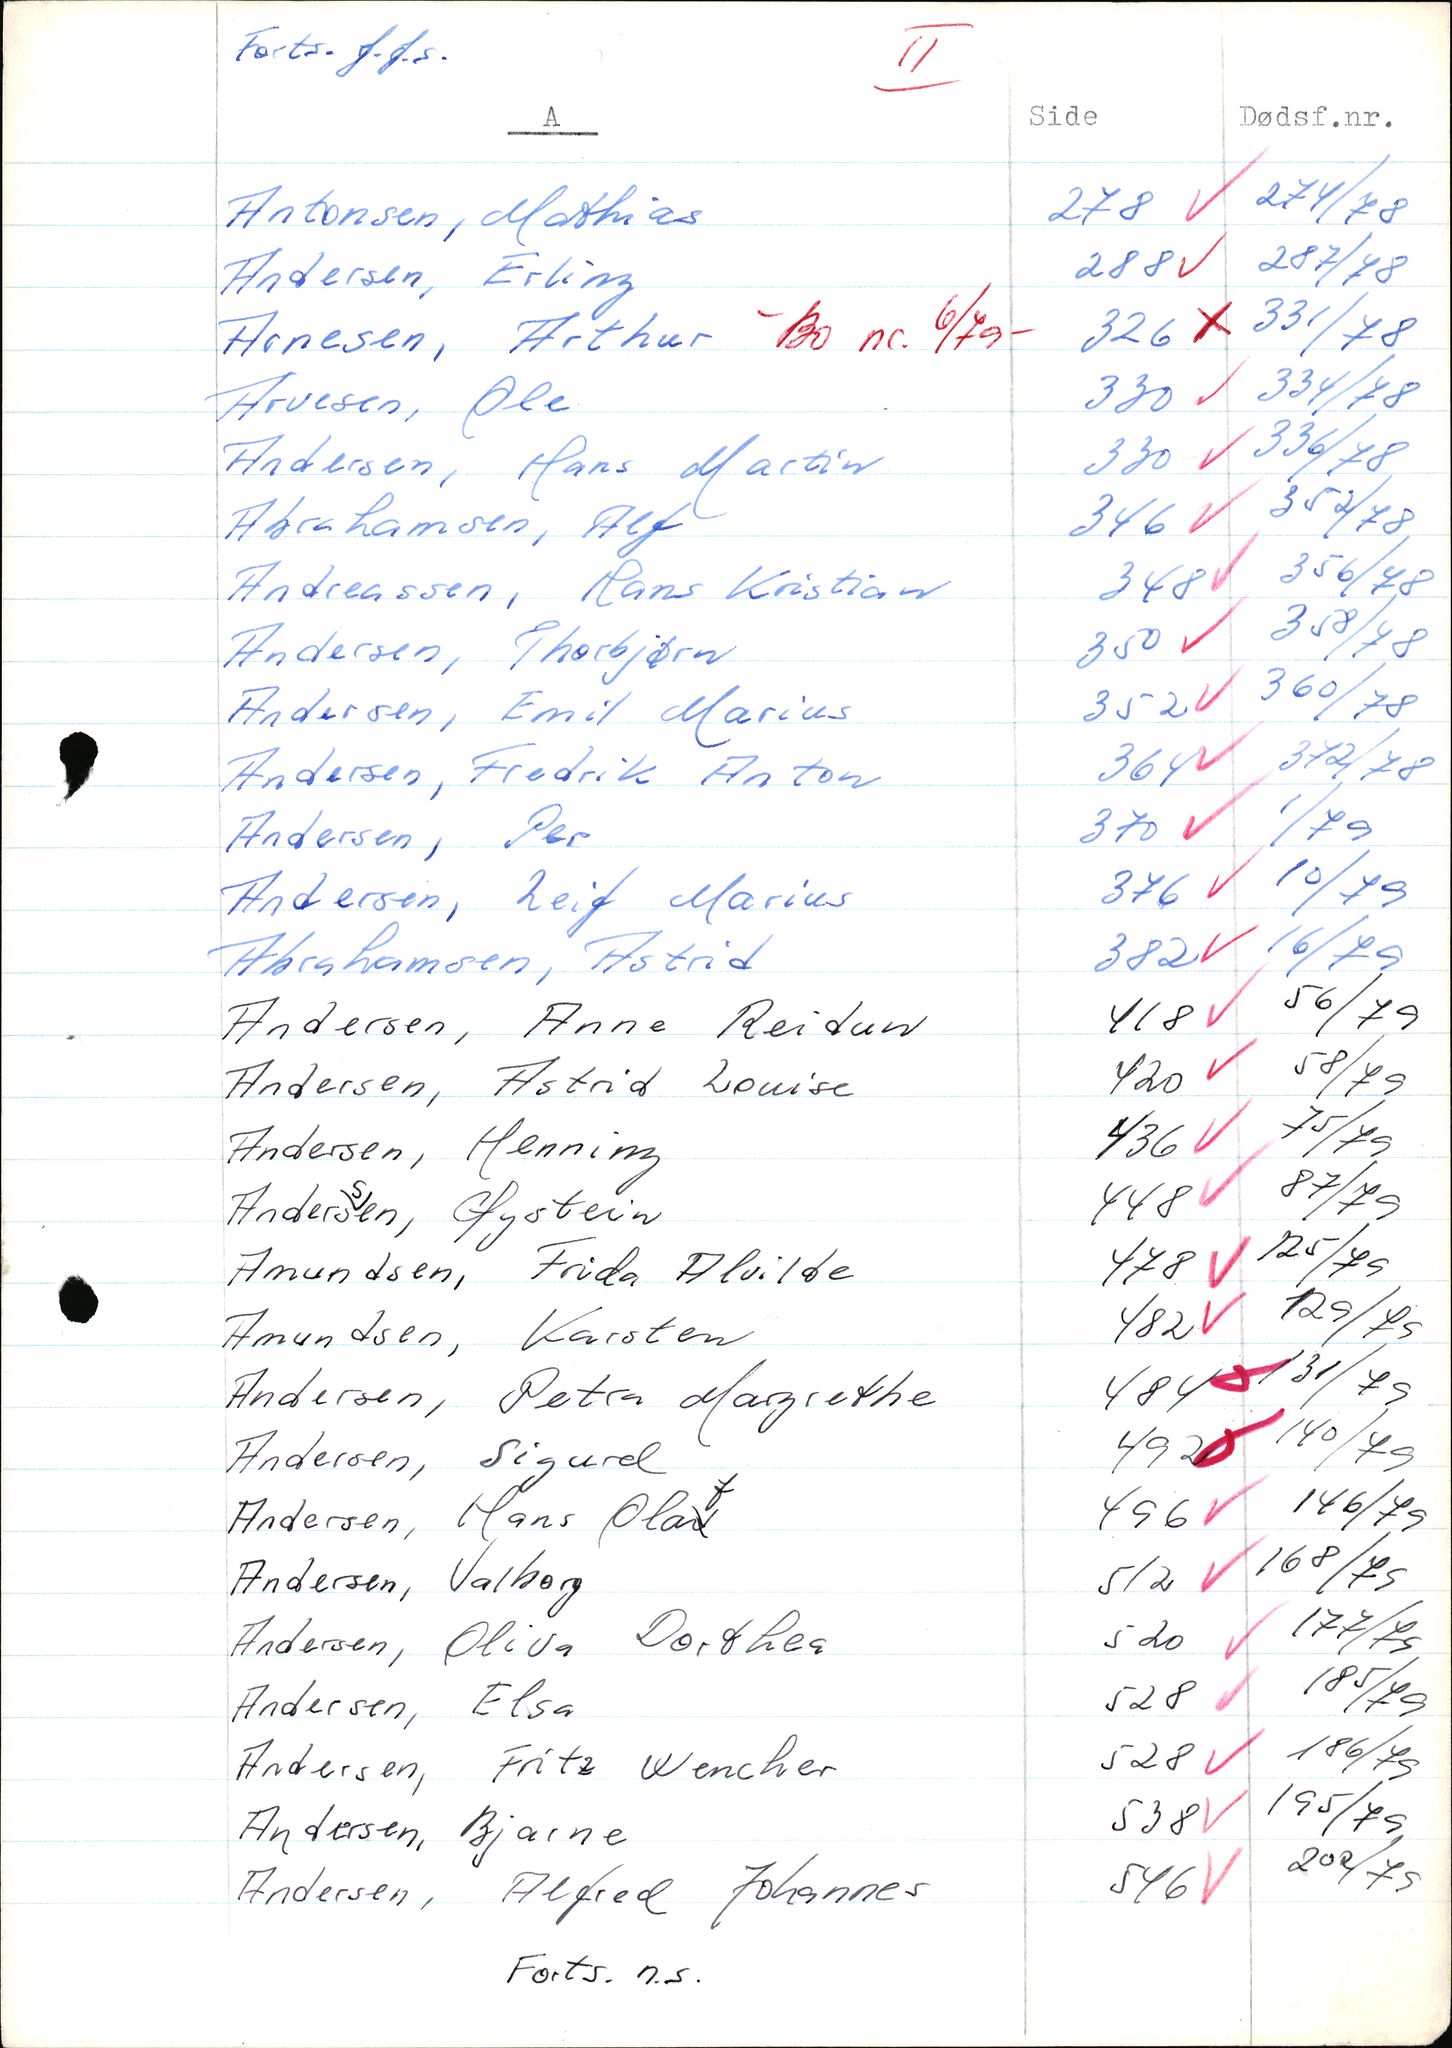 Forts. f.f.s.
II
A Side Dødsf.nr.
Antonsen, Mathias 278 ✓ 274/78
Andersen, Erling 288 ✓ 287/78
Arnesen, Arthur - Bo nr. 6/79 - 326 X 331/78
Arvesen, Ole 330 ✓ 334/78
Andersen, Hans Martin 330 ✓ 336/78
Abrahamsen, Alf 346 ✓ 352/78
Andreassen, Hans Kristian 348 ✓ 356/78
Andersen, Thorbjørn 350 ✓ 358/78
Andersen, Emil Marius 352 ✓ 360/78
Andersen, Fredrik Anton 364 ✓ 372/78
Andersen, Per 370 ✓ 1/79
Andersen, Leif Marius 376 ✓ 10/79
Abrahamsen, Astrid 382 ✓ 16/79
Andersen, Anne Reidun 418 ✓ 56/79
Andersen, Astrid Louise 420 ✓ 58/79
Andersen, Henning 436 ✓ 75/79
Anderssen, Øystein 448 ✓ 87/79
Amundsen, Frida Alvilde 478 ✓ 125/79
Amundsen, Karsten 482 ✓ 129/79
Andersen, Petra Margrethe 484 131/79
Andersen, Sigurd 492 140/79
Andersen, Hans Olaf 496 ✓ 146/79
Andersen, Valborg 512 ✓ 168/79
Andersen, Oliva Dorthea 520 ✓ 177/79
Andersen, Elsa 528 ✓ 185/79
Andersen, Fritz Wencher 528 ✓ 186/79
Andersen, Bjarne 538 ✓ 195/79
Andersen, Alfred Johannes 546 ✓ 202/79
Forts. n.s.